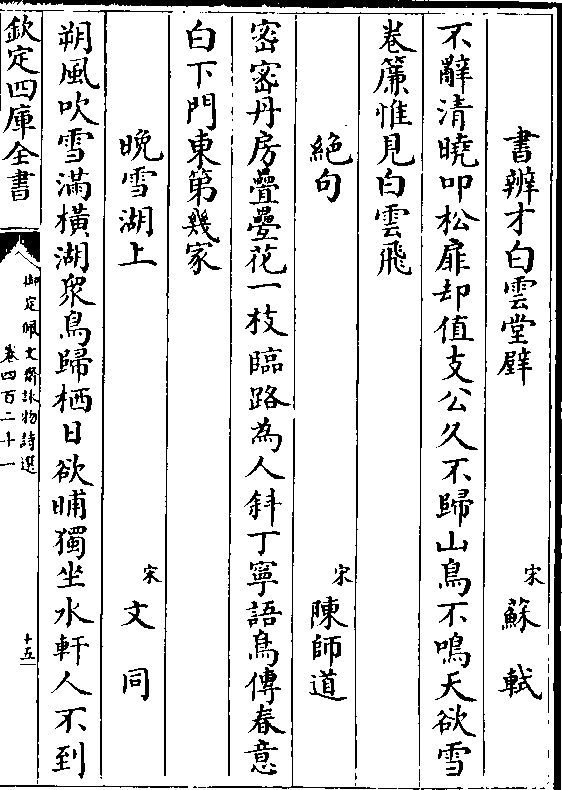 書辨才白雲堂壁
宋 蘇軾
不辭清曉叩松扉却值支公久不歸山鳥不鳴天欲雪
卷簾惟見白雲飛
絶句
宋 陳師道
密密丹房疊疊花一枝臨路為人斜丁寧語鳥傳春意
白下門東第幾家
晩雪湖上
宋 文同
朔風吹雪滿橫湖衆鳥歸栖日欲晡獨坐水軒人不到
欽定四庫全書
御定佩文齋詠物詩選
卷四百二十一
十五